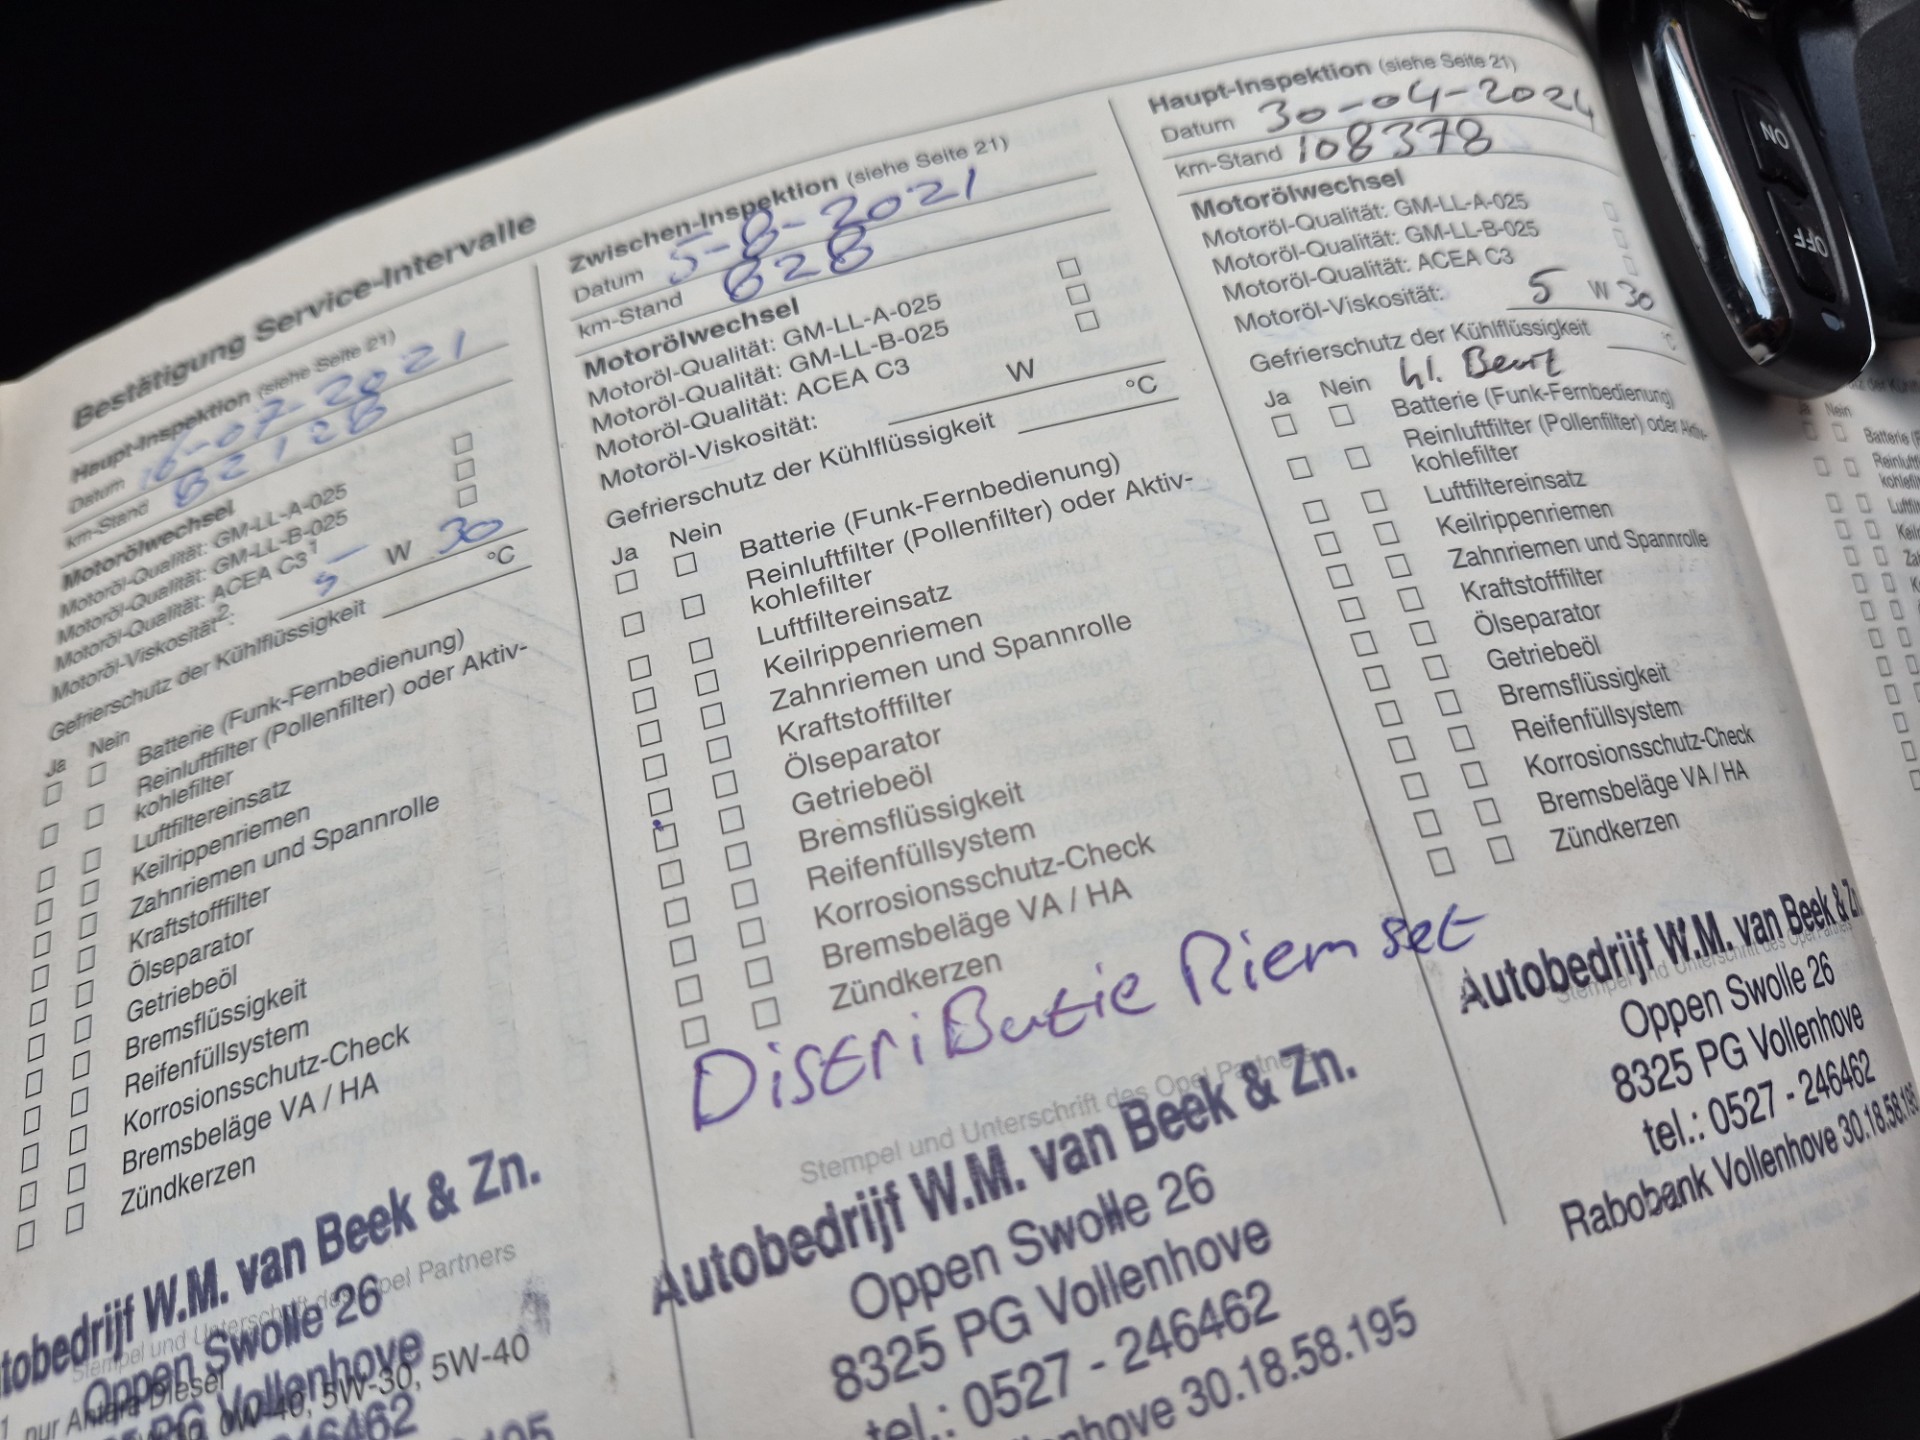 Bestätigung Service-Intervalle
Haupt-Inspektion (siehe Seite 21)
Datum 16-07-2021
km-Stand 82128
Motorölwechsel
Motoröl-Qualität: GM-LL-A-025
Motoröl-Qualität: GM-LL-B-025
Motoröl-Qualität: ACEA C3¹
Motoröl-Viskosität²: 5 W 30
Gefrierschutz der Kühlflüssigkeit °C
Ja Nein
Batterie (Funk-Fernbedienung)
Reinluftfilter (Pollenfilter) oder Aktiv-
kohlefilter
Luftfiltereinsatz
Keilrippenriemen
Zahnriemen und Spannrolle
Kraftstofffilter
Ölseparator
Getriebeöl
Bremsflüssigkeit
Reifenfüllsystem
Korrosionsschutz-Check
Bremsbeläge VA / HA
Zündkerzen
tobedrijf W.M. van Beek & Zn.
Stempel und Unterschrift des Opel Partners
Oppen Swolle 26
PG Vollenhove
246462
195
1 nur Antara Diesel
0W-40, 5W-30, 5W-40
Zwischen-Inspektion (siehe Seite 21)
Datum 5-8-2021
km-Stand 828
Motorölwechsel
Motoröl-Qualität: GM-LL-A-025
Motoröl-Qualität: GM-LL-B-025
Motoröl-Qualität: ACEA C3
Motoröl-Viskosität: W
Gefrierschutz der Kühlflüssigkeit °C
Ja Nein
Batterie (Funk-Fernbedienung)
Reinluftfilter (Pollenfilter) oder Aktiv-
kohlefilter
Luftfiltereinsatz
Keilrippenriemen
Zahnriemen und Spannrolle
Kraftstofffilter
Ölseparator
Getriebeöl
Bremsflüssigkeit
Reifenfüllsystem
Korrosionsschutz-Check
Bremsbeläge VA / HA
Zündkerzen
DistriButie Riem set
Stempel und Unterschrift des Opel Partners
Autobedrijf W.M. van Beek & Zn.
Oppen Swolle 26
8325 PG Vollenhove
tel.: 0527 - 246462
lenhove 30.18.58.195
Haupt-Inspektion (siehe Seite 21)
Datum 30-04-2024
km-Stand 108378
Motorölwechsel
Motoröl-Qualität: GM-LL-A-025
Motoröl-Qualität: GM-LL-B-025
Motoröl-Qualität: ACEA C3
Motoröl-Viskosität: 5 W 30
Gefrierschutz der Kühlflüssigkeit °C
Ja Nein kl. Beurt
Batterie (Funk-Fernbedienung)
Reinluftfilter (Pollenfilter) oder Aktiv-
kohlefilter
Luftfiltereinsatz
Keilrippenriemen
Zahnriemen und Spannrolle
Kraftstofffilter
Ölseparator
Getriebeöl
Bremsflüssigkeit
Reifenfüllsystem
Korrosionsschutz-Check
Bremsbeläge VA / HA
Zündkerzen
Autobedrijf W.M. van Beek & Zn
Stempel und Unterschrift des Opel Partners
Oppen Swolle 26
8325 PG Vollenhove
tel.: 0527 - 246462
Rabobank Vollenhove 30.18.58.195
ON
OFF
Ja Nein
Batterie